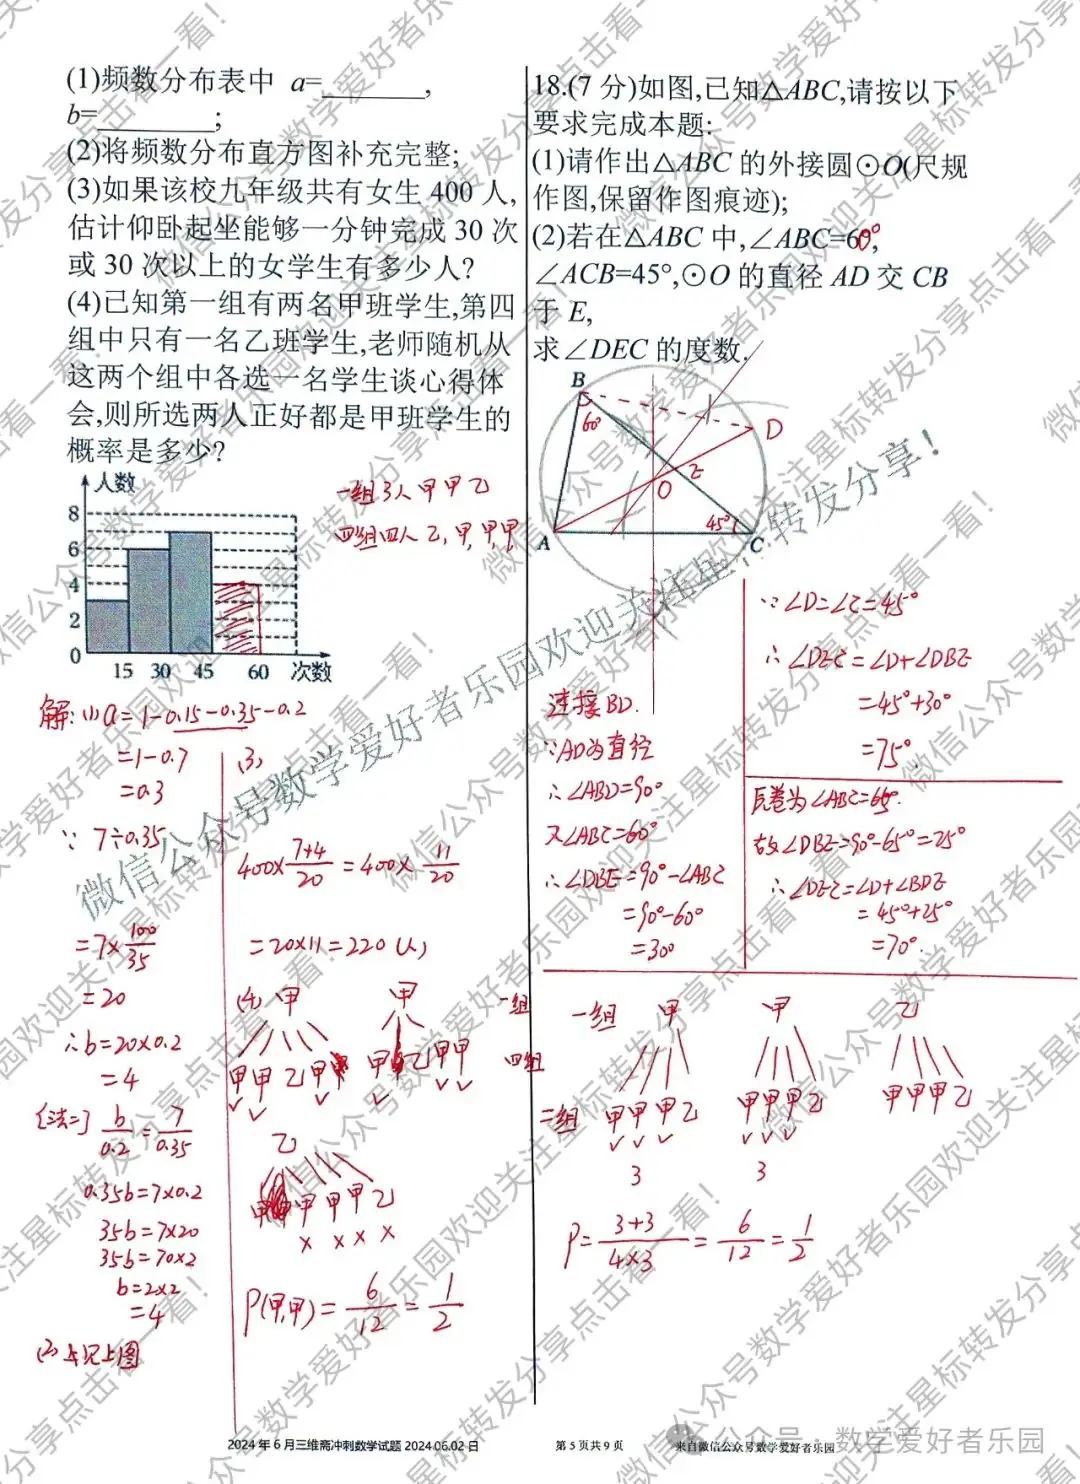 (1)频数分布表中 a=________,
b=________;
(2)将频数分布直方图补充完整;
(3)如果该校九年级共有女生 400 人,
估计仰卧起坐能够一分钟完成 30 次
或 30 次以上的女学生有多少人?
(4)已知第一组有两名甲班学生,第四
组中只有一名乙班学生,老师随机从
这两个组中各选一名学生谈心得体
会,则所选两人正好都是甲班学生的
概率是多少?
人数
8
6
4
2
0
15 30 45 60 次数
一组3人甲甲乙
四组四人乙,甲,甲,甲
解:(1)a=1-0.15-0.35-0.2
=1-0.7
=0.3
∵ 7÷0.35
=7×100/35
=20
∴b=20×0.2
=4
(法二) b/0.2=7/0.35
0.35b=7×0.2
35b=7×20
35b=70×2
b=2×2
=4
(3)
400×(7+4)/20=400×11/20
=20×11=220(人)
(4) 甲 甲 一组
甲甲乙甲 甲乙甲甲 四组
乙
甲甲甲乙
× × × ×
P(甲,甲)=6/12=1/2
18.(7 分)如图,已知△ABC,请按以下
要求完成本题:
(1)请作出△ABC 的外接圆⊙O(尺规
作图,保留作图痕迹);
(2)若在△ABC 中,∠ABC=60°,
∠ACB=45°,⊙O 的直径 AD 交 CB
于 E,
求∠DEC 的度数.
B
60°
D
E
O
45°
A
C
连接BD.
∵AD为直径
∴∠ABD=90°
又∠ABC=60°
∴∠DBE=90°-∠ABC
=90°-60°
=30°
∵∠D=∠C=45°
∴∠DEC=∠D+∠DBE
=45°+30°
=75°.
原卷为∠ABC=65°.
故∠DBE=90°-65°=25°
∴∠DEC=∠D+∠BDE
=45°+25°
=70°.
一组 甲 甲 乙
二组 甲甲甲乙 甲甲甲乙 甲甲甲乙
3 3
P=(3+3)/(4×3)=6/12=1/2
2024 年 6 月三维斋冲刺数学试题 2024.06.02 日
第 5 页共 9 页
来自微信公众号数学爱好者乐园
公众号·数学爱好者乐园
微信公众号数学爱好者乐园欢迎关注星标转发分享!
微信公众号数学爱好者乐园欢迎关注星标转发分享点击看一看!